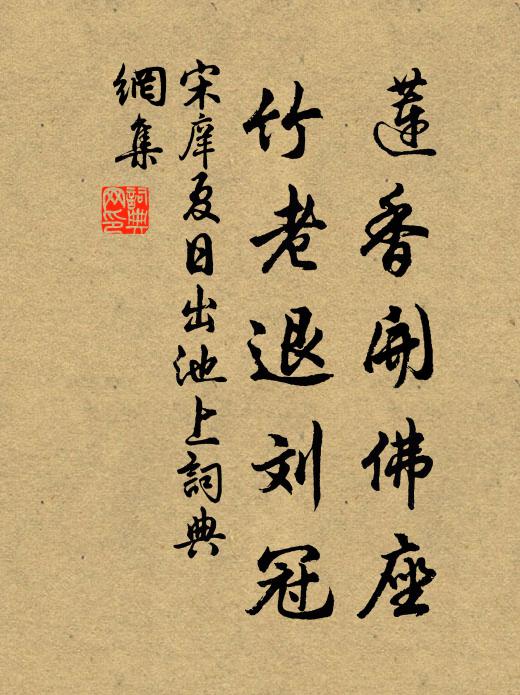 蓮香開佛座
竹老退刘冠
宋庠夏日出池上詞典
網集
詞典网印